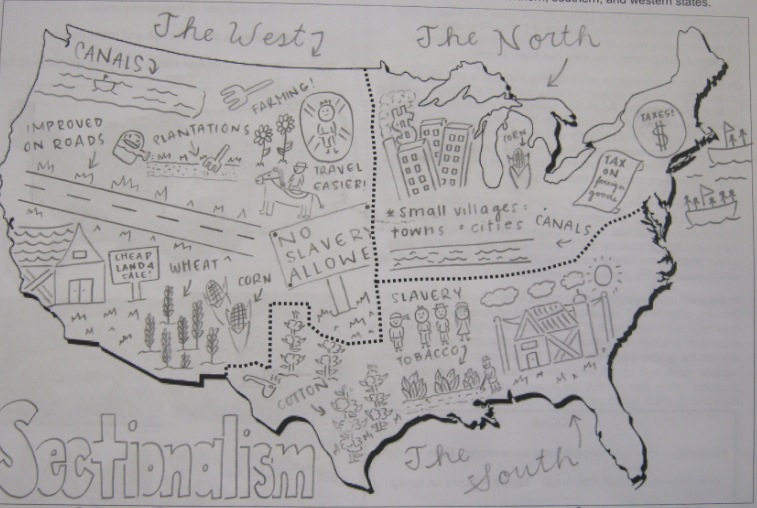 southern, and western states.
The West
The North
CANALS
FARMING!
IMPROVED
ON ROADS
PLANTATIONS
TRAVEL
EASIER!
NO
SLAVERY
ALLOWE
CHEAP
LAND 4
SALE!
WHEAT
CORN
CORN
TAXES!
$
TAX
ON
foreign
goods
*small villages:
towns • cities
CANALS
SLAVERY
TOBACCO
COTTON
The
South
Sectionalism